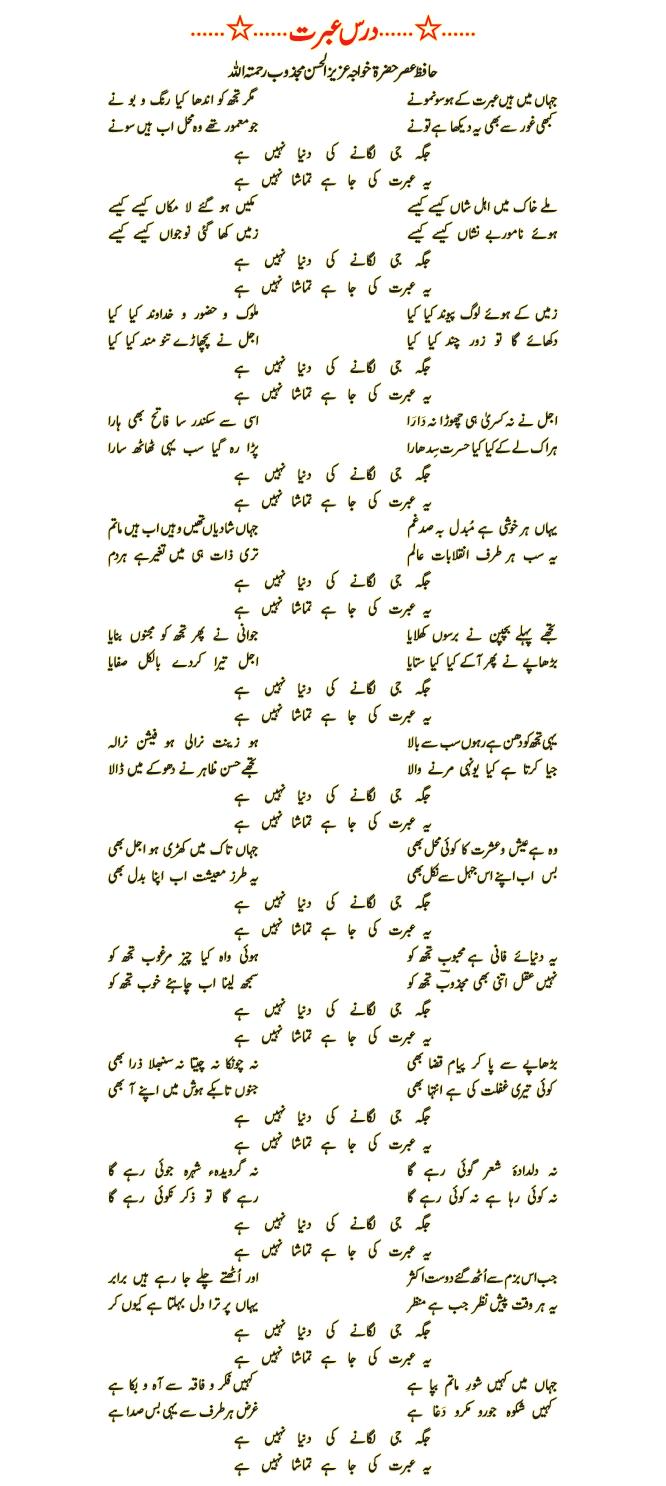 ......☆......درس عبرت......☆......
حافظ عصر حضرۃ خواجہ عزیز الحسن مجذوب رحمتہ اللہ
جہاں میں ہیں عبرت کے ہر سو نمونے مگر تجھ کو اندھا کیا رنگ و بو نے
کبھی غور سے بھی یہ دیکھا ہے تو نے جو معمور تھے وہ محل اب ہیں سونے
جگہ جی لگانے کی دنیا نہیں ہے
یہ عبرت کی جا ہے تماشا نہیں ہے
ملے خاک میں اہل شاں کیسے کیسے مکیں ہو گئے لا مکاں کیسے کیسے
ہوئے نامور بے نشاں کیسے کیسے زمیں کھا گئی نوجواں کیسے کیسے
جگہ جی لگانے کی دنیا نہیں ہے
یہ عبرت کی جا ہے تماشا نہیں ہے
زمیں کے ہوئے لوگ پیوند کیا کیا ملوک و حضور و خداوند کیا کیا
دکھائے گا تو زور چند کیا کیا اجل نے پچھاڑے تنو مند کیا کیا
جگہ جی لگانے کی دنیا نہیں ہے
یہ عبرت کی جا ہے تماشا نہیں ہے
اجل نے نہ کسریٰ ہی چھوڑا نہ دَارَا اسی سے سکندر سا فاتح بھی ہارا
ہر اک لے کے کیا کیا حسرت سِدھارا پڑا رہ گیا سب یہی ٹھاٹھ سارا
جگہ جی لگانے کی دنیا نہیں ہے
یہ عبرت کی جا ہے تماشا نہیں ہے
یہاں ہر خوشی ہے مُبدل بہ صد غم جہاں شادیاں تھیں وہیں اب ہیں ماتم
یہ سب ہر طرف انقلابات عالم تری ذات ہی میں تغیر ہے ہر دم
جگہ جی لگانے کی دنیا نہیں ہے
یہ عبرت کی جا ہے تماشا نہیں ہے
تجھے پہلے بچپن نے برسوں کھلایا جوانی نے پھر تجھ کو مجنوں بنایا
بڑھاپے نے پھر آ کے کیا کیا ستایا اجل تیرا کر دے بالکل صفایا
جگہ جی لگانے کی دنیا نہیں ہے
یہ عبرت کی جا ہے تماشا نہیں ہے
یہی تجھ کو دھن ہے رہوں سب سے بالا ہو زینت نرالی ہو فیشن نرالہ
جیا کرتا ہے کیا یونہی مرنے والا تجھے حسن ظاہر نے دھوکے میں ڈالا
جگہ جی لگانے کی دنیا نہیں ہے
یہ عبرت کی جا ہے تماشا نہیں ہے
وہ ہے عیش و عشرت کا کوئی محل بھی جہاں تاک میں کھڑی ہو اجل بھی
بس اب اپنے اس جہل سے نکل بھی یہ طرز معیشت اب اپنا بدل بھی
جگہ جی لگانے کی دنیا نہیں ہے
یہ عبرت کی جا ہے تماشا نہیں ہے
یہ دنیائے فانی ہے محبوب تجھ کو ہوئی واہ کیا چیز مرغوب تجھ کو
نہیں عقل اتنی بھی مجذوب تجھ کو سمجھ لینا اب چاہئے خوب تجھ کو
جگہ جی لگانے کی دنیا نہیں ہے
یہ عبرت کی جا ہے تماشا نہیں ہے
بڑھاپے سے پا کر پیام قضا بھی نہ چونکا نہ چیتا نہ سنبھلا ذرا بھی
کوئی تیری غفلت کی ہے انتہا بھی جنوں تا بکے ہوش میں اپنے آ بھی
جگہ جی لگانے کی دنیا نہیں ہے
یہ عبرت کی جا ہے تماشا نہیں ہے
نہ دلدادۂ شعر گوئی رہے گا نہ گرویدہء شہرہ جوئی رہے گا
نہ کوئی رہا ہے نہ کوئی رہے گا رہے گا تو ذکر نکوئی رہے گا
جگہ جی لگانے کی دنیا نہیں ہے
یہ عبرت کی جا ہے تماشا نہیں ہے
جب اس بزم سے اُٹھ گئے دوست اکثر اور اُٹھتے چلے جا رہے ہیں برابر
یہ ہر وقت پیش نظر جب ہے منظر یہاں پر ترا دل بہلتا ہے کیوں کر
جگہ جی لگانے کی دنیا نہیں ہے
یہ عبرت کی جا ہے تماشا نہیں ہے
جہاں میں کہیں شورِ ماتم بپا ہے کہیں فکر و فاقہ سے آہ و بکا ہے
کہیں شکوہ جور و مکر و دَغا ہے غرض ہر طرف سے یہی بس صدا ہے
جگہ جی لگانے کی دنیا نہیں ہے
یہ عبرت کی جا ہے تماشا نہیں ہے